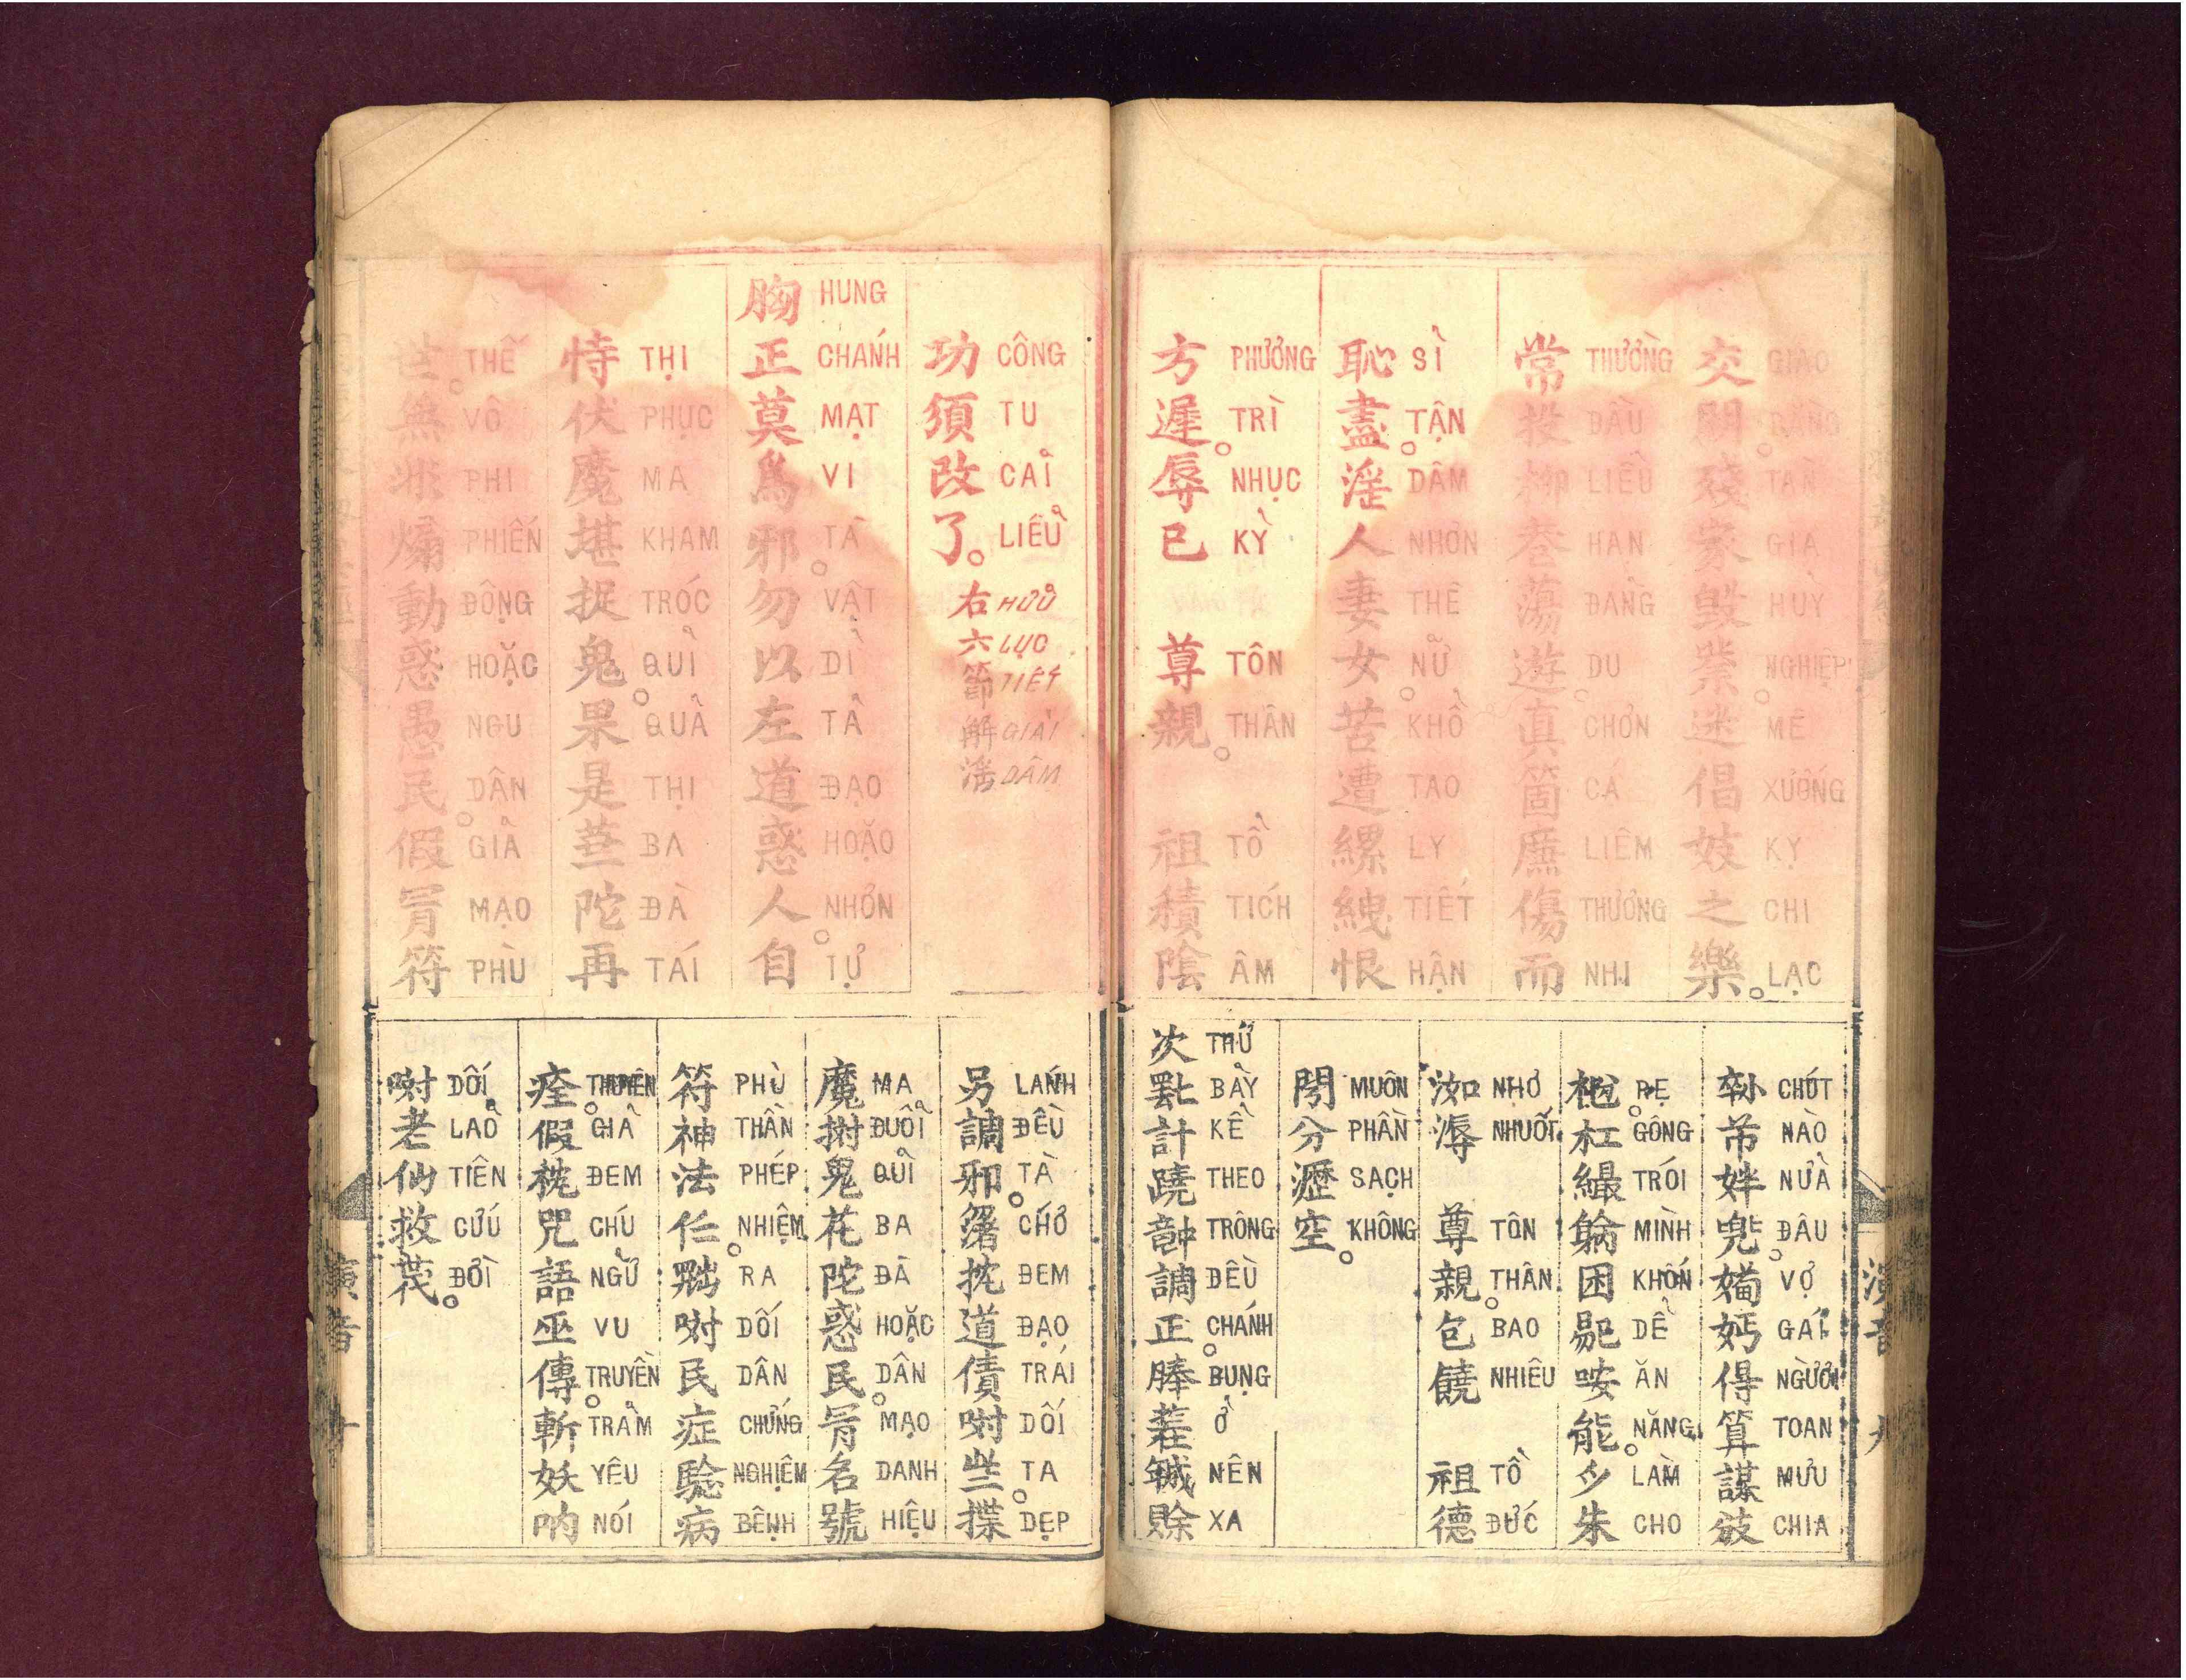 交 GIAO 關 殘 TÀN 家 GIA 毀 HUỶ 業 NGHIỆP 迷 MÊ 倡 XƯỚNG 妓 KỴ 之 CHI 樂 LẠC
常 THƯỜNG 投 ĐẦU 柳 LIỄU 巷 HẠN 蕩 ĐẢNG 遊 DU 真 CHƠN 箇 CÁ 廉 LIÊM 傷 THƯƠNG 而 NHI
恥 SỈ 盡 TẬN 淫 DÂM 人 NHƠN 妻 THÊ 女 NỮ 苦 KHỔ 遭 TAO 縲 LY 絏 TIẾT 恨 HẬN
方 PHƯƠNG 遲 TRÌ 辱 NHỤC 己 KỶ 尊 TÔN 親 THÂN 祖 TỔ 積 TÍCH 陰 ÂM
CHÚT NÀO NỬA ĐÂU VỢ GÁI 得 NGƯỜI 算 TOAN 謀 MƯU CHIA
RẺ 杠 GÔNG TRÓI MÌNH 困 KHỐN DỄ 咹 ĂN 能 NĂNG LÀM 朱 CHO
洳 NHƠ 溽 NHUỐT 尊 TÔN 親 THÂN 包 BAO 饒 NHIÊU 祖 TỔ 德 ĐỨC
MUÔN 分 PHẦN 瀝 SẠCH 空 KHÔNG
次 THỨ BẢY 計 KỂ 蹺 THEO TRÔNG 調 ĐỀU 正 CHÁNH BỤNG Ở NÊN 賒 XA
功 CÔNG 須 TU 改 CẢI 了 LIỄU 右 HỮU 六 LỤC 節 TIẾT 解 GIẢI 淫 DÂM
胸 HUNG 正 CHÁNH 莫 MẠT 爲 VI 邪 TÀ 勿 VẬT 以 DĨ 左 TẢ 道 ĐẠO 惑 HOẶC 人 NHƠN 自 TỰ
恃 THỊ 伏 PHỤC 魔 MA 堪 KHAM 捉 TRÓC 鬼 QUỈ 果 QUẢ 是 THỊ 芭 BA 陀 ĐÀ 再 TÁI
世 THẾ 無 VÔ 非 PHI 煽 PHIẾN 動 ĐỘNG 惑 HOẶC 愚 NGU 民 DÂN 假 GIẢ 冐 MẠO 符 PHÙ
另 LÁNH 調 ĐỀU 邪 TÀ CHỚ ĐEM 道 ĐẠO 債 TRÁI DỐI 些 TA 揲 DẸP
魔 MA ĐUỔI 鬼 QUỈ 花 BA 陀 ĐÀ 惑 HOẶC 民 DÂN 冐 MẠO 名 DANH 號 HIỆU
符 PHÙ 神 THẦN 法 PHÉP 任 NHIỆM RA DỐI 民 DÂN 症 CHỨNG 驗 NGHIỆM 病 BỆNH
痊 THUYÊN 假 GIẢ ĐEM 咒 CHÚ 語 NGỮ 巫 VU 傳 TRUYỀN 斬 TRẢM 妖 YÊU 吶 NÓI
DỐI 老 LÃO 仙 TIÊN 救 CỨU ĐỜI
演音 九
演音 十